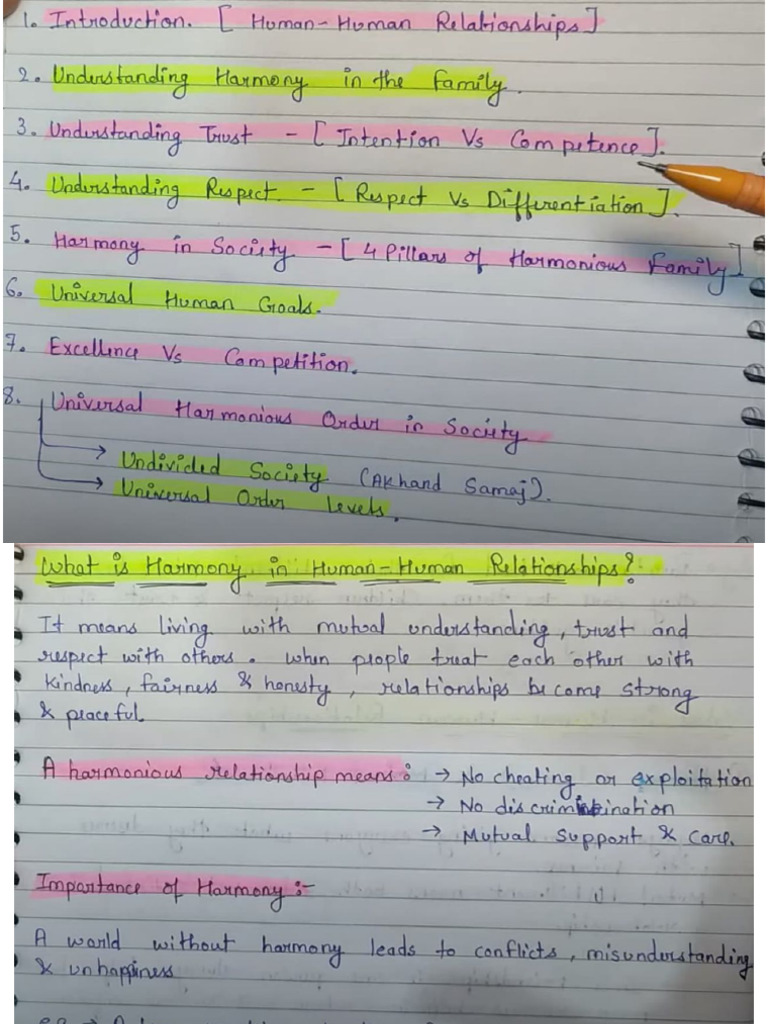 1. Introduction. [ Human-Human Relationships]
2. Understanding Harmony in the Family.
3. Understanding Trust - [ Intention Vs Competence].
4. Understanding Respect. - [ Respect Vs Differentiation].
5. Harmony in Society - [ 4 Pillars of Harmonious Family]
6. Universal Human Goals.
7. Excellence Vs Competition.
8. Universal Harmonious Order in Society
→ Undivided Society (Akhand Samaj).
→ Universal Order Levels.
What is Harmony in Human-Human Relationships?
It means living with mutual understanding, trust and
respect with others. when people treat each other with
kindness, fairness & honesty, relationships become strong
& peaceful.
A harmonious relationship means: → No cheating or exploitation
→ No discrimination
→ Mutual support & care.
Importance of Harmony :-
A world without harmony leads to conflicts, misunderstanding
& unhappiness